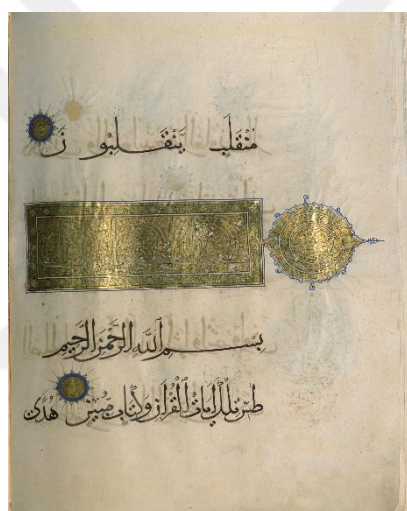 مُنْقَلَبٍ يَنْقَلِبُو نَ
بِسْمِ اللَّهِ الرَّحْمٰنِ الرَّحِيمِ
طس تِلْكَ اٰيَاتُ الْقُرْاٰنِ وَكِتَابٍ مُبِينٍ هُدًى